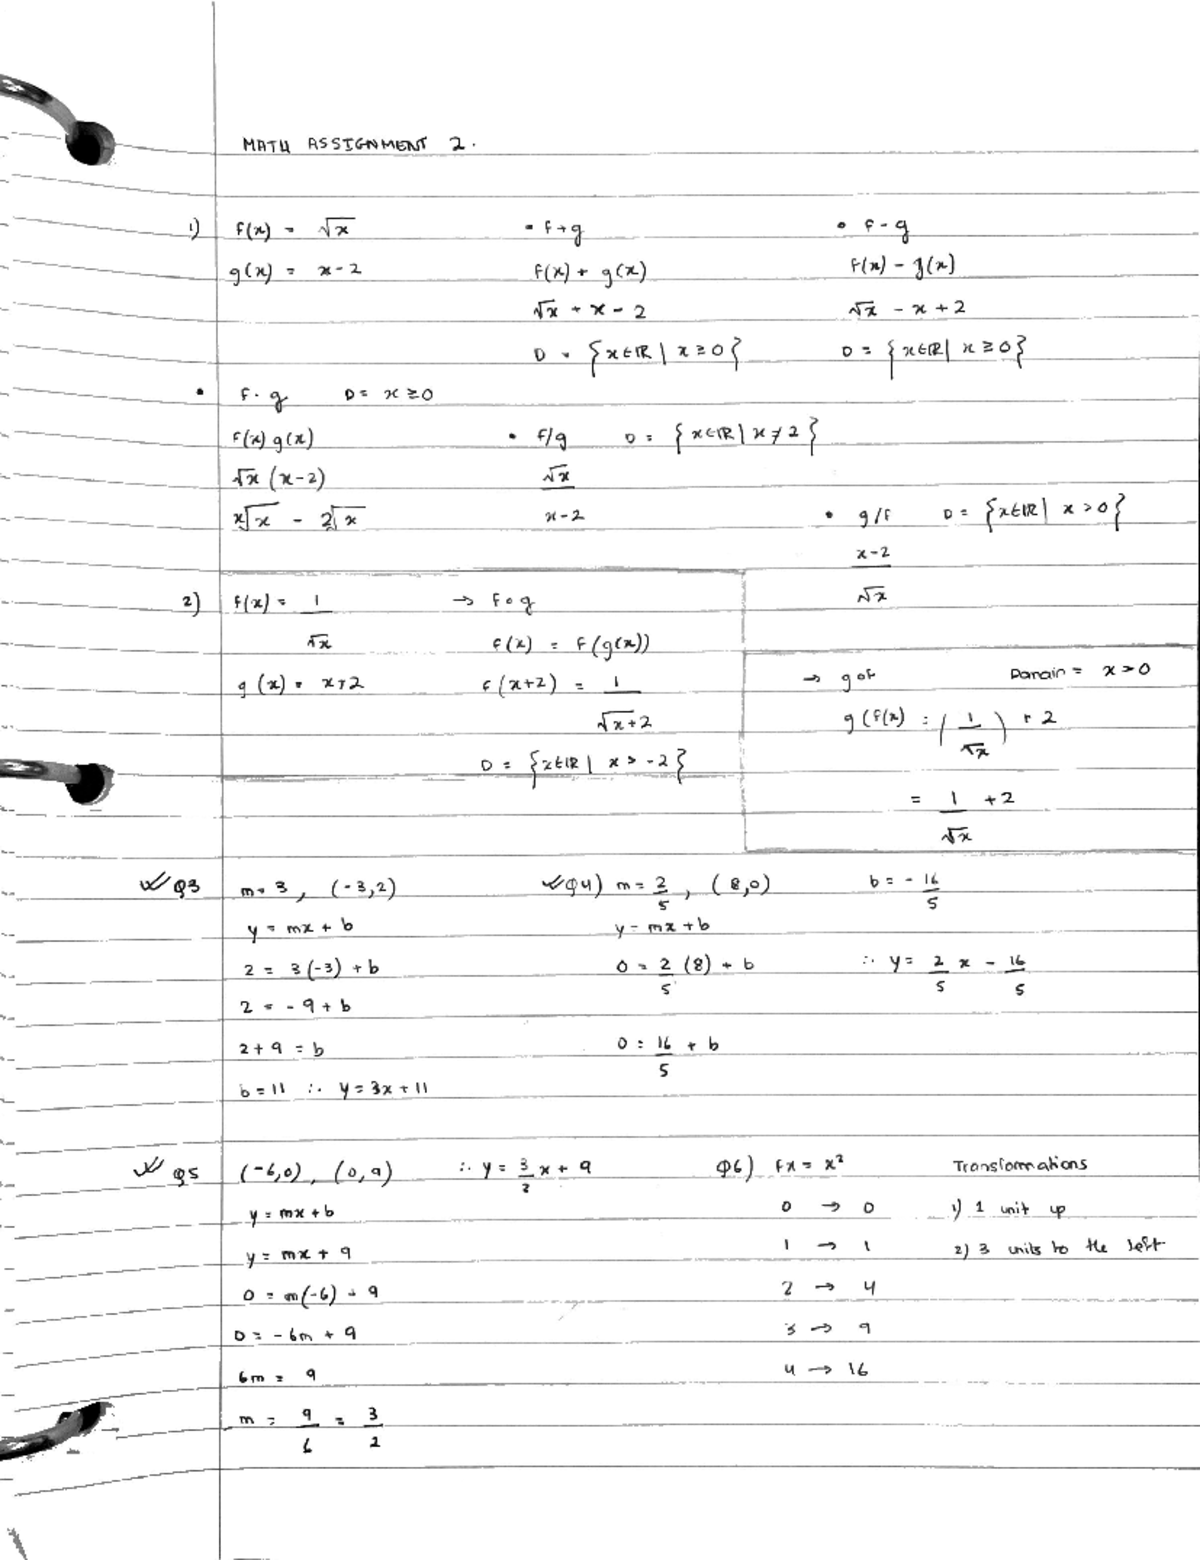 MATH ASSIGNMENT 2.
1) f(x) = √x
g(x) = x-2
• f+g
f(x) + g(x)
√x + x - 2
D = {x∈ℝ | x ≥ 0}
• f-g
f(x) - g(x)
√x - x + 2
D = {x∈ℝ | x ≥ 0}
• f·g D = x ≥ 0
f(x) g(x)
√x (x-2)
x√x - 2√x
• f/g D = {x∈ℝ | x ≠ 2}
√x
x-2
• g/f D = {x∈ℝ | x > 0}
x-2
√x
2) f(x) = 1
√x
g(x) = x+2
→ f∘g
f(x) = f(g(x))
f(x+2) = 1
√x+2
D = {x∈ℝ | x > -2}
→ g∘f Domain = x > 0
g(f(x) = (1/√x) + 2
= 1 + 2
√x
Q3 m = 3, (-3,2)
y = mx + b
2 = 3(-3) + b
2 = -9 + b
2+9 = b
b = 11 ∴ y = 3x + 11
Q4) m = 2/5, (8,0)
y = mx + b
0 = 2/5 (8) + b
0 = 16/5 + b
b = - 16/5
∴ y = 2/5 x - 16/5
Q5 (-6,0), (0,9)
y = mx + b
y = mx + 9
0 = m(-6) + 9
0 = -6m + 9
6m = 9
m = 9/6 = 3/2
∴ y = 3/2 x + 9
Q6) fx = x²
0 → 0
1 → 1
2 → 4
3 → 9
4 → 16
Transformations
1) 1 unit up
2) 3 units to the left